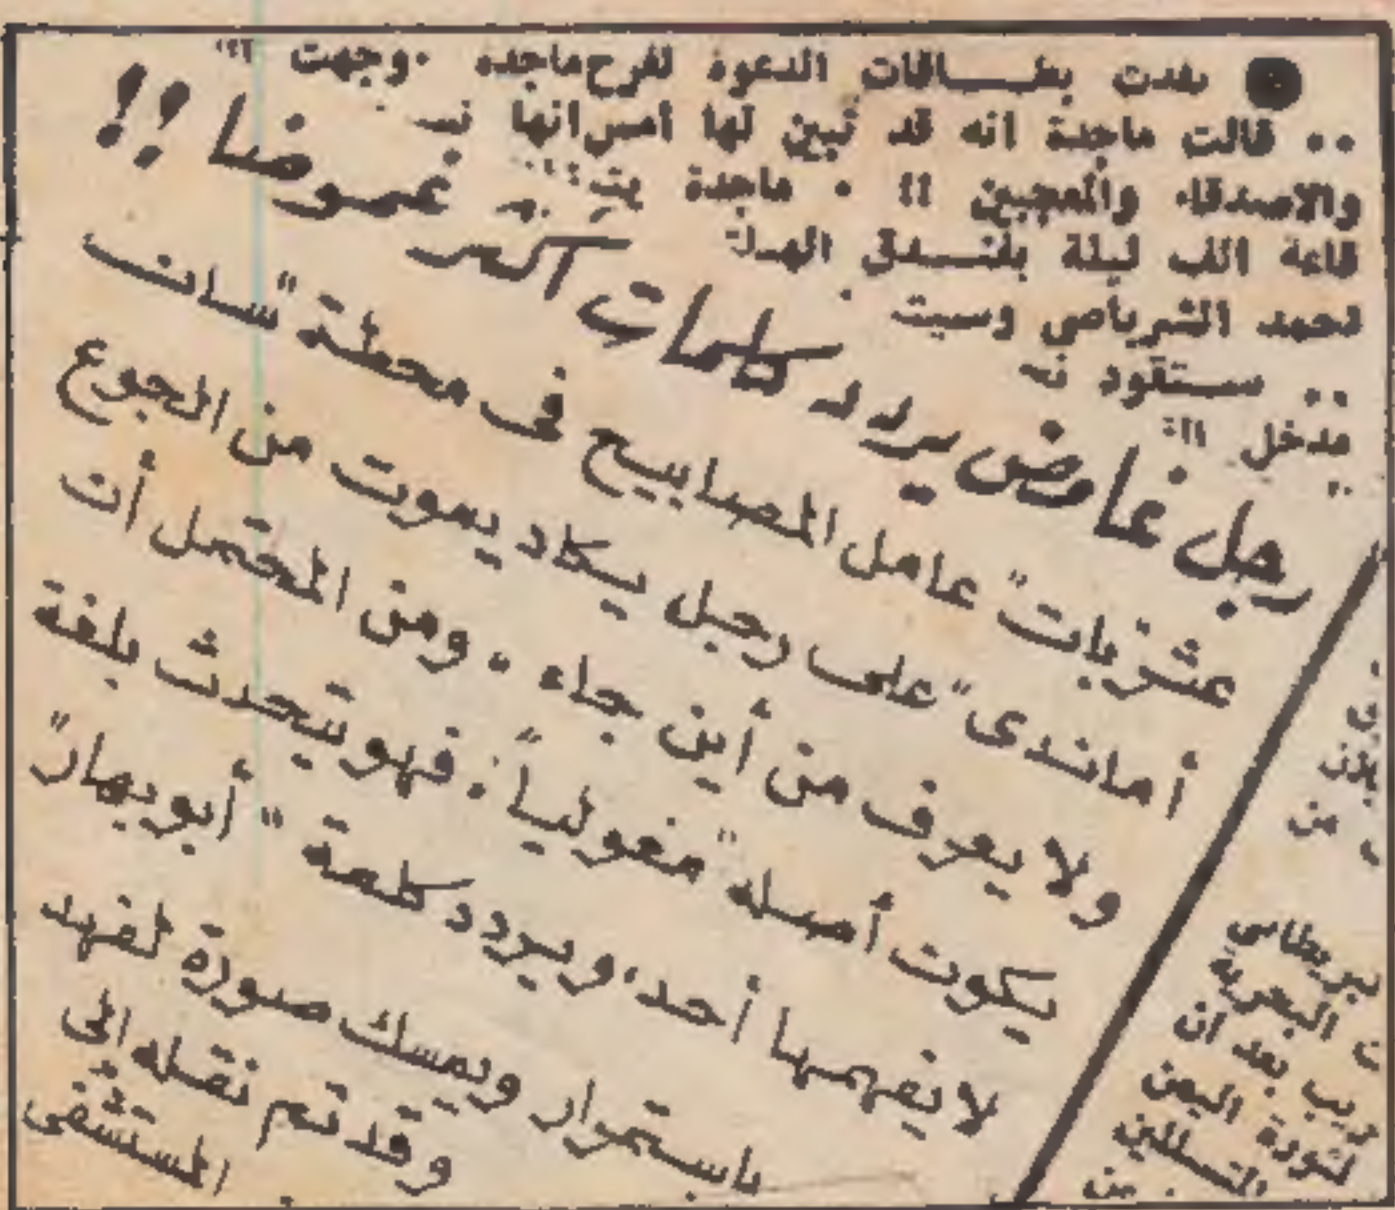 ● نفدت بطاقات الدعوة لفرح ماجدة . وجهت !!
.. قالت ماجدة انه قد تبين لها أمس انها
والاصدقاء والمعجبين !! . ماجدة
قاعة الف ليلة بفنـدق
لحمد الشرباصي وسيت
.. ستقود
مدخل !!
رجل غامض يردد كلمات أكثر غموضا !!
عثر بات" عامل المصابيح في محطة "سانت
أماندى" على رجل يكاد يموت من الجوع
ولا يعرف من أين جاء . ومن المحتمل أن
يكون أصله "مغولياً" . فهو يتحدث بلغة
لا يفهمها أحد ، ويردد كلمة " أبو بهار"
باستمرار ويمسك صورة لفهد
وقد تم نقله إلى
المستشفى
من
ت البحرية
ريب بعد ان
لثورة اليمن
من